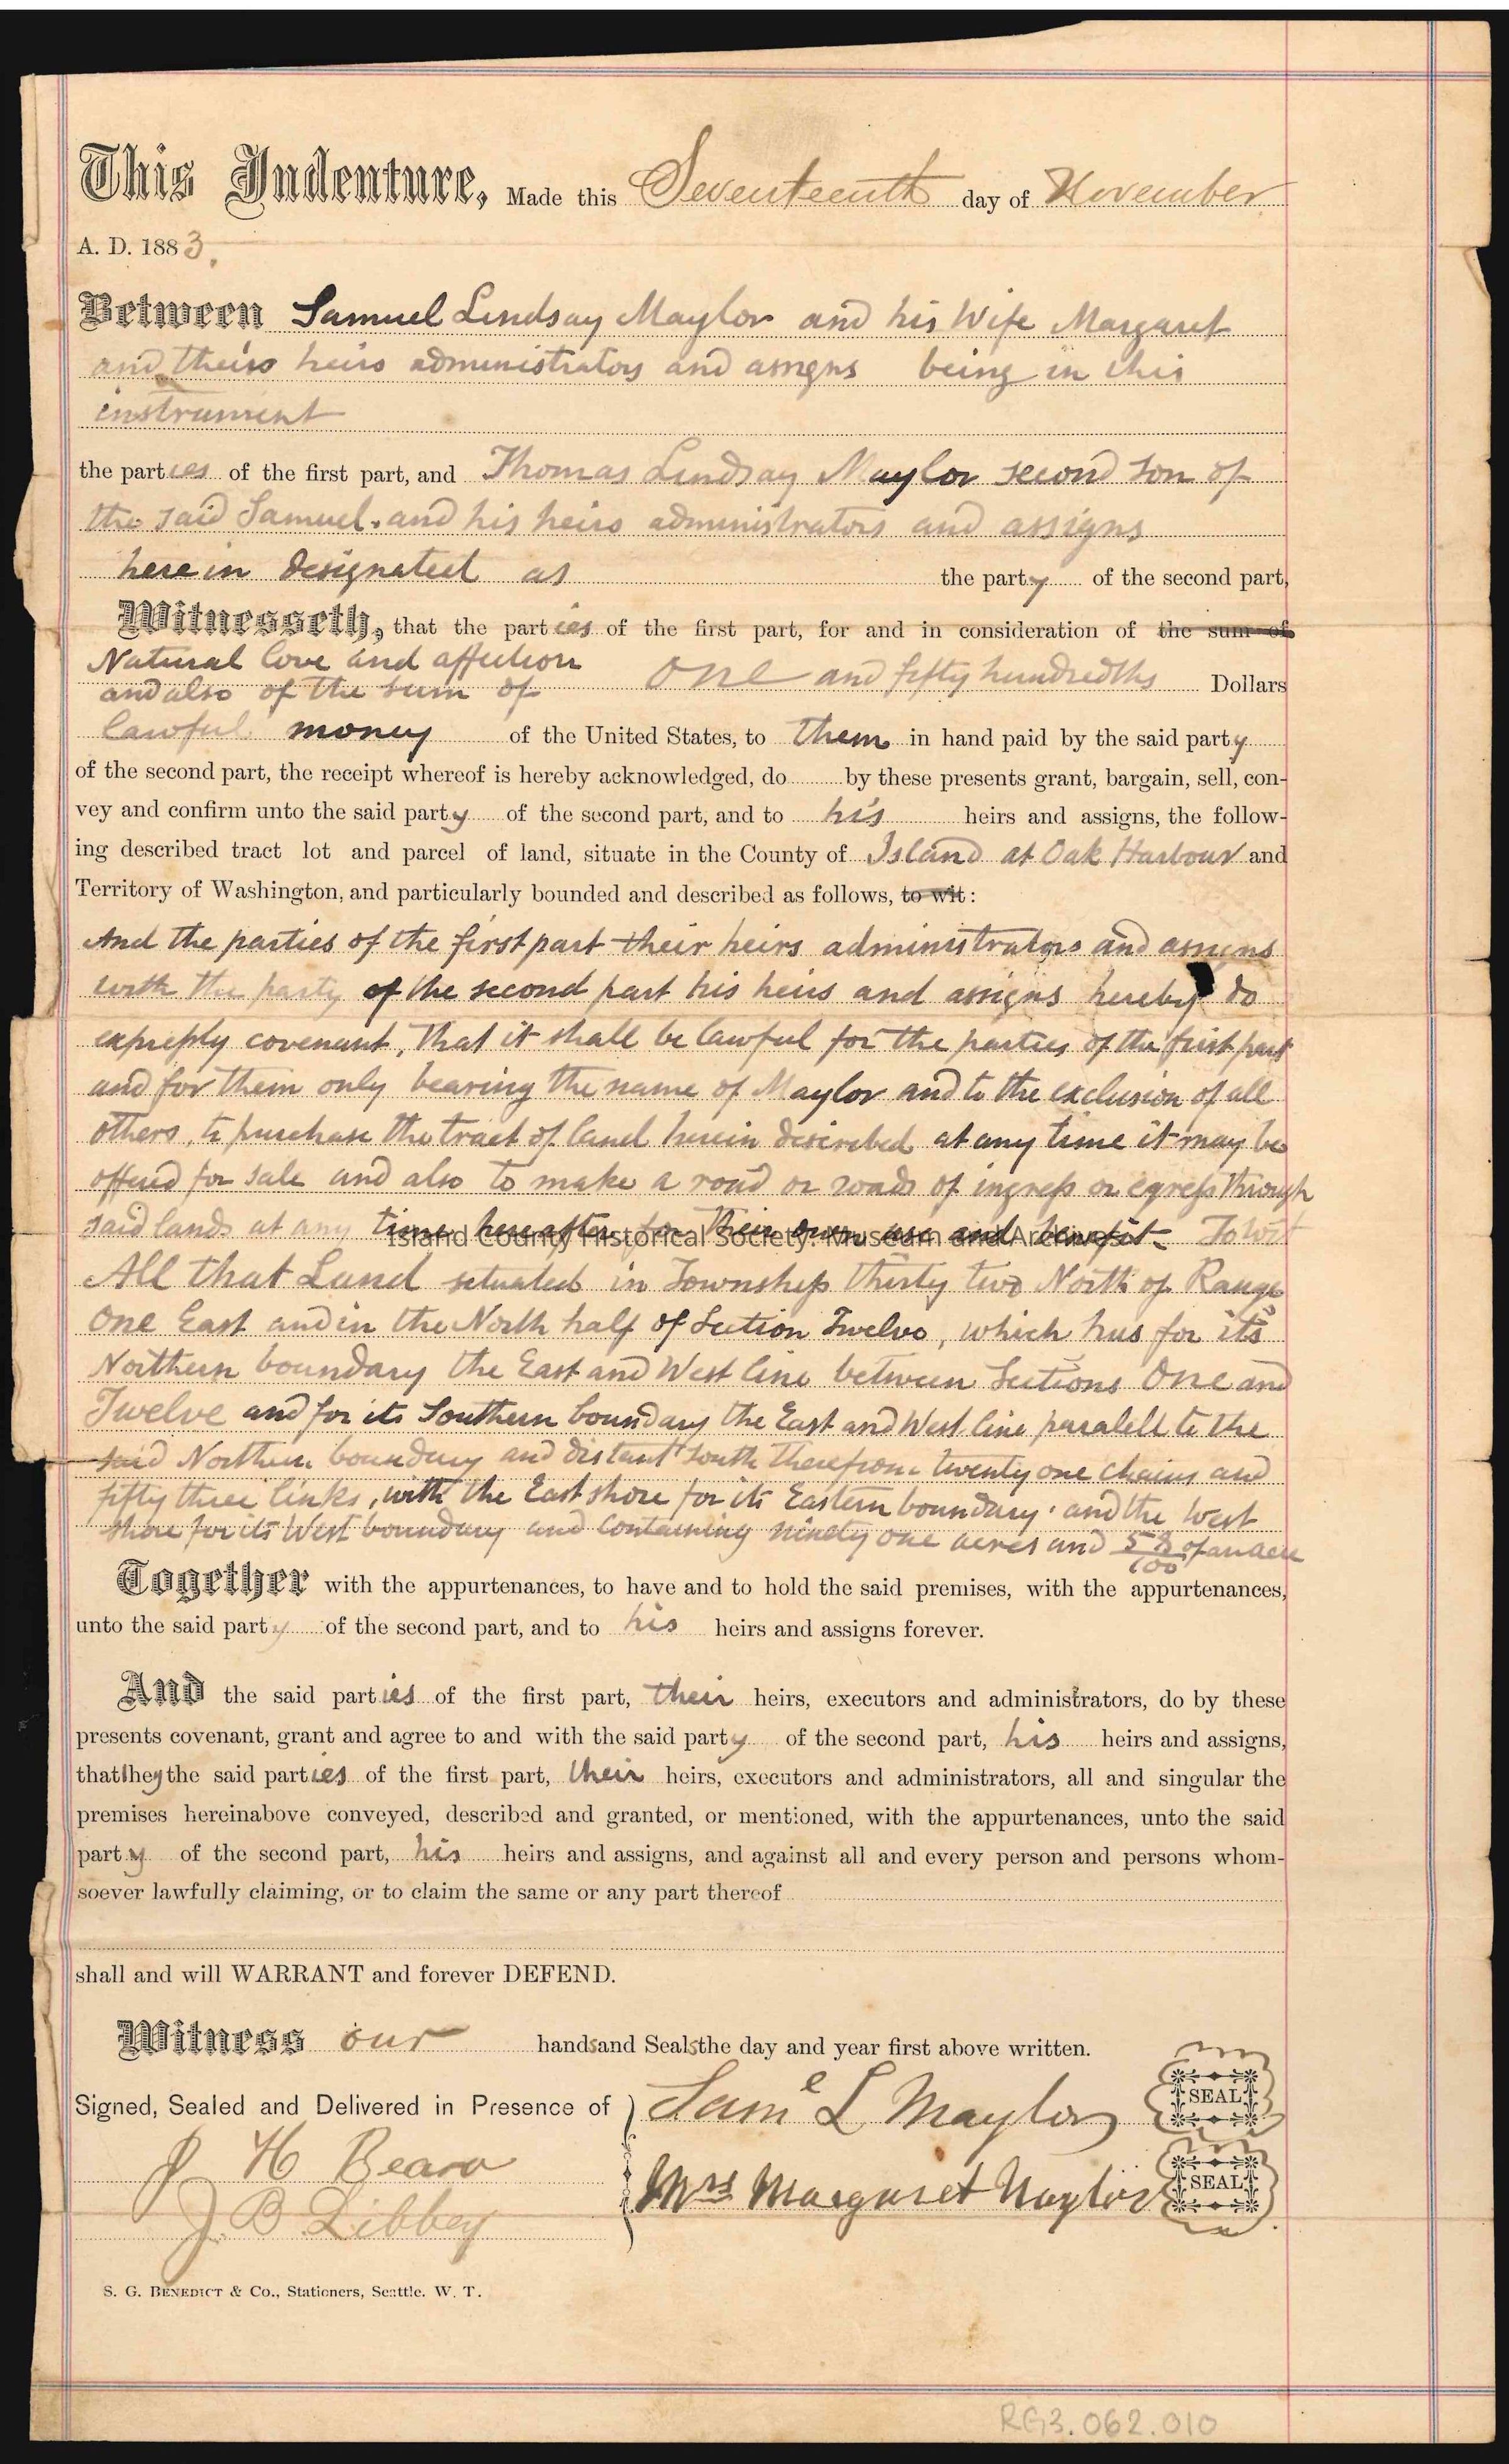 This Indenture, Made this Seventeenth day of November
A. D. 1883.
Between Samuel Lindsay Maylor and his Wife Margaret
and theirs heirs administrators and assigns being in this
instrument
the parties of the first part, and Thomas Lindsay Maylor second son of
the said Samuel and his heirs administrators and assigns
here in designated as the party of the second part,
Witnesseth, that the parties of the first part, for and in consideration of the sum of
Natural love and affection
and also of the sum of One and fifty hundredths Dollars
lawful money of the United States, to them in hand paid by the said party
of the second part, the receipt whereof is hereby acknowledged, do by these presents grant, bargain, sell, con-
vey and confirm unto the said party of the second part, and to his heirs and assigns, the follow-
ing described tract lot and parcel of land, situate in the County of Island at Oak Harbour and
Territory of Washington, and particularly bounded and described as follows, to wit:
And the parties of the first part their heirs administrators and assigns
with the party of the second part his heirs and assigns hereby do
expressly covenant, That it shall be lawful for the parties of the first part
and for them only bearing the name of Maylor and to the exclusion of all
others, to purchase the tract of land herein described at any time it may be
offered for sale and also to make a road or roads of ingress or egress through
said lands at any time hereafter for their own use and benefit - To wit
Island County Historical Society: Museum and Archives
All that Land situated in Township thirty two North of Range
One East and in the North half of Section Twelve, which has for its
Northern boundary the East and West line between Sections One and
Twelve and for its Southern boundary the East and West line paralell to the
said Northern boundary and distant South therefrom twenty one chains and
fifty three links, with the East shore for its Eastern boundary and the West
shore for its West boundary and containing ninety one acres and 58/100 of an acre
Together with the appurtenances, to have and to hold the said premises, with the appurtenances,
unto the said party of the second part, and to his heirs and assigns forever.
And the said parties of the first part, their heirs, executors and administrators, do by these
presents covenant, grant and agree to and with the said party of the second part, his heirs and assigns,
that they the said parties of the first part, their heirs, executors and administrators, all and singular the
premises hereinabove conveyed, described and granted, or mentioned, with the appurtenances, unto the said
party of the second part, his heirs and assigns, and against all and every person and persons whom-
soever lawfully claiming, or to claim the same or any part thereof
shall and will WARRANT and forever DEFEND.
Witness our hands and Seals the day and year first above written.
Signed, Sealed and Delivered in Presence of
Saml L Maylor SEAL
J H Beara
Mrs Margaret Naylor SEAL
J. B Libbey
S. G. BENEDICT & Co., Stationers, Seattle. W. T.
RG3.062.010